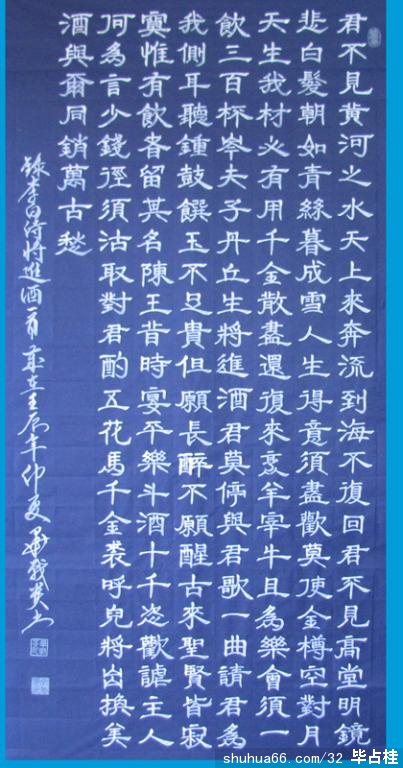 君不見黃河之水天上來奔流到海不復回君不見高堂明鏡
悲白髮朝如青絲暮成雪人生得意須盡歡莫使金樽空對月
天生我材必有用千金散盡還復來烹羊宰牛且為樂會須一
飲三百杯岑夫子丹丘生將進酒君莫停與君歌一曲請君為
我側耳聽鍾鼓饌玉不足貴但願長醉不願醒古來聖賢皆寂
寞惟有飲者留其名陳王昔時宴平樂斗酒十千恣歡謔主人
何為言少錢徑須沽取對君酌五花馬千金裘呼兒將出換美
酒與爾同銷萬古愁
錄李白詩將進酒一首歲在壬辰年仲夏
shuhua66.com/32 毕占桂